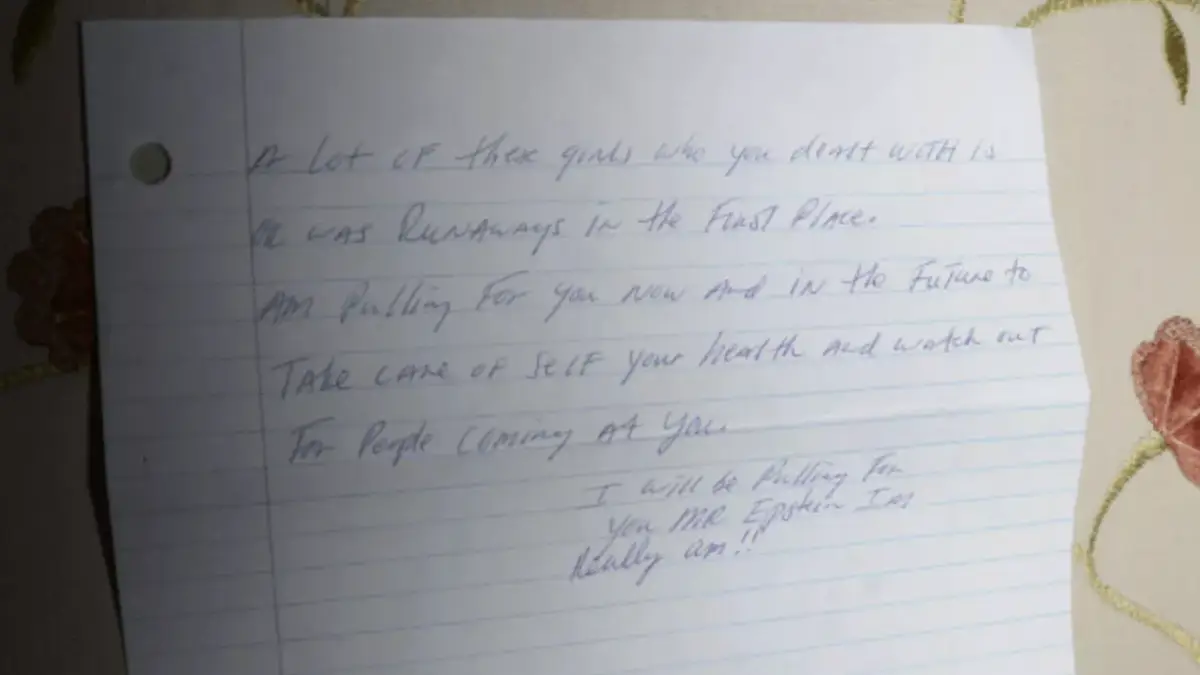 A Lot OF these girls who you dealt WITH is
OR WAS RUNAWAYS IN the FIRST PLACE.
AM Pulling For you NOW And IN the FUTURE to
TAKE CARE OF SELF your health and watch out
For People Coming At You.
I will be Pulling For
you MR Epstein Im
Really am!!